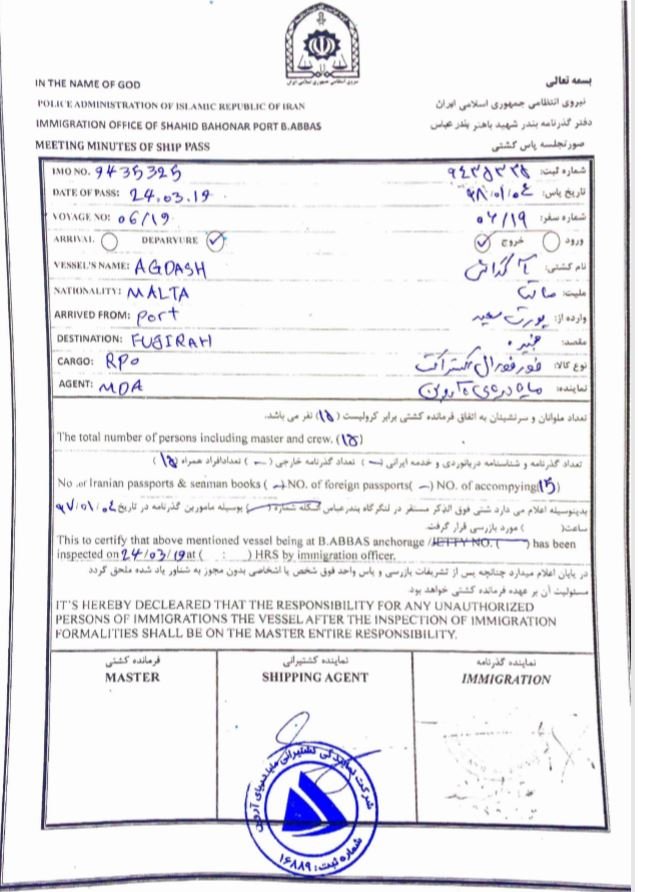 بسمه تعالی
IN THE NAME OF GOD
نیروی انتظامی جمهوری اسلامی ایران
POLICE ADMINISTRATION OF ISLAMIC REPUBLIC OF IRAN
دفتر گذرنامه بندر شهید باهنر بندر عباس
IMMIGRATION OFFICE OF SHAHID BAHONAR PORT B.ABBAS
صورتجلسه پاس کشتی
MEETING MINUTES OF SHIP PASS
IMO NO. 9435325 شماره ثبت:
DATE OF PASS: 24.03.19 تاریخ پاس: ۹۸/۰۱/۰۴
VOYAGE NO: 06/19 شماره سفر: ۰۶/۱۹
ARRIVAL DEPARYURE ورود خروج
VESSEL'S NAME: AGDASH نام کشتی:
NATIONALITY: MALTA ملیت: مالتا
ARRIVED FROM: Port وارده از: پورت سعید
DESTINATION: FUJIRAH مقصد: فجیره
CARGO: RPO نوع کالا:
AGENT: MDA نماینده:
تعداد ملوانان و سرنشینان به اتفاق فرمانده کشتی برابر کرولیست (۱۵) نفر می باشد.
The total number of persons including master and crew. (۱۵)
تعداد گذرنامه و شناسنامه دریانوردی و خدمه ایرانی (—) تعداد گذرنامه خارجی (—) تعدادافراد همراه (۱۵)
No .or Iranian passports & senman books ( —)NO. of foreign passports( —) NO. of accompying(15)
بدینوسیله اعلام می دارد شتی فوق الذکر مستقر در لنگرگاه بندرعباس /اسکله شماره ( ) بوسیله مامورین گذرنامه در تاریخ ۹۷/۰۱/۰۴
ساعت( ) مورد بازرسی قرار گرفت.
This to certify that above mentioned vessel being at B.ABBAS anchorage /JETTY NO. ( ) has been
inspected on 24/03/19 at ( : ) HRS by immigration officer.
در پایان اعلام میدارد چنانچه پس از تشریفات بازرسی و پاس واحد فوق شخص یا اشخاصی بدون مجوز به شناور یاد شده ملحق گردد
مسئولیت آن بر عهده فرمانده کشتی خواهد بود
IT'S HEREBY DECLEARED THAT THE RESPONSIBILITY FOR ANY UNAUTHORIZED
PERSONS OF IMMIGRATIONS THE VESSEL AFTER THE INSPECTION OF IMMIGRATION
FORMALITIES SHALL BE ON THE MASTER ENTIRE RESPONSIBILITY.
فرمانده کشتی
MASTER
نماینده کشتیرانی
SHIPPING AGENT
نماینده گذرنامه
IMMIGRATION
شرکت نمایندگی کشتیرانی ماه دریای آروین
شماره ثبت: ۱۶۸۸۹